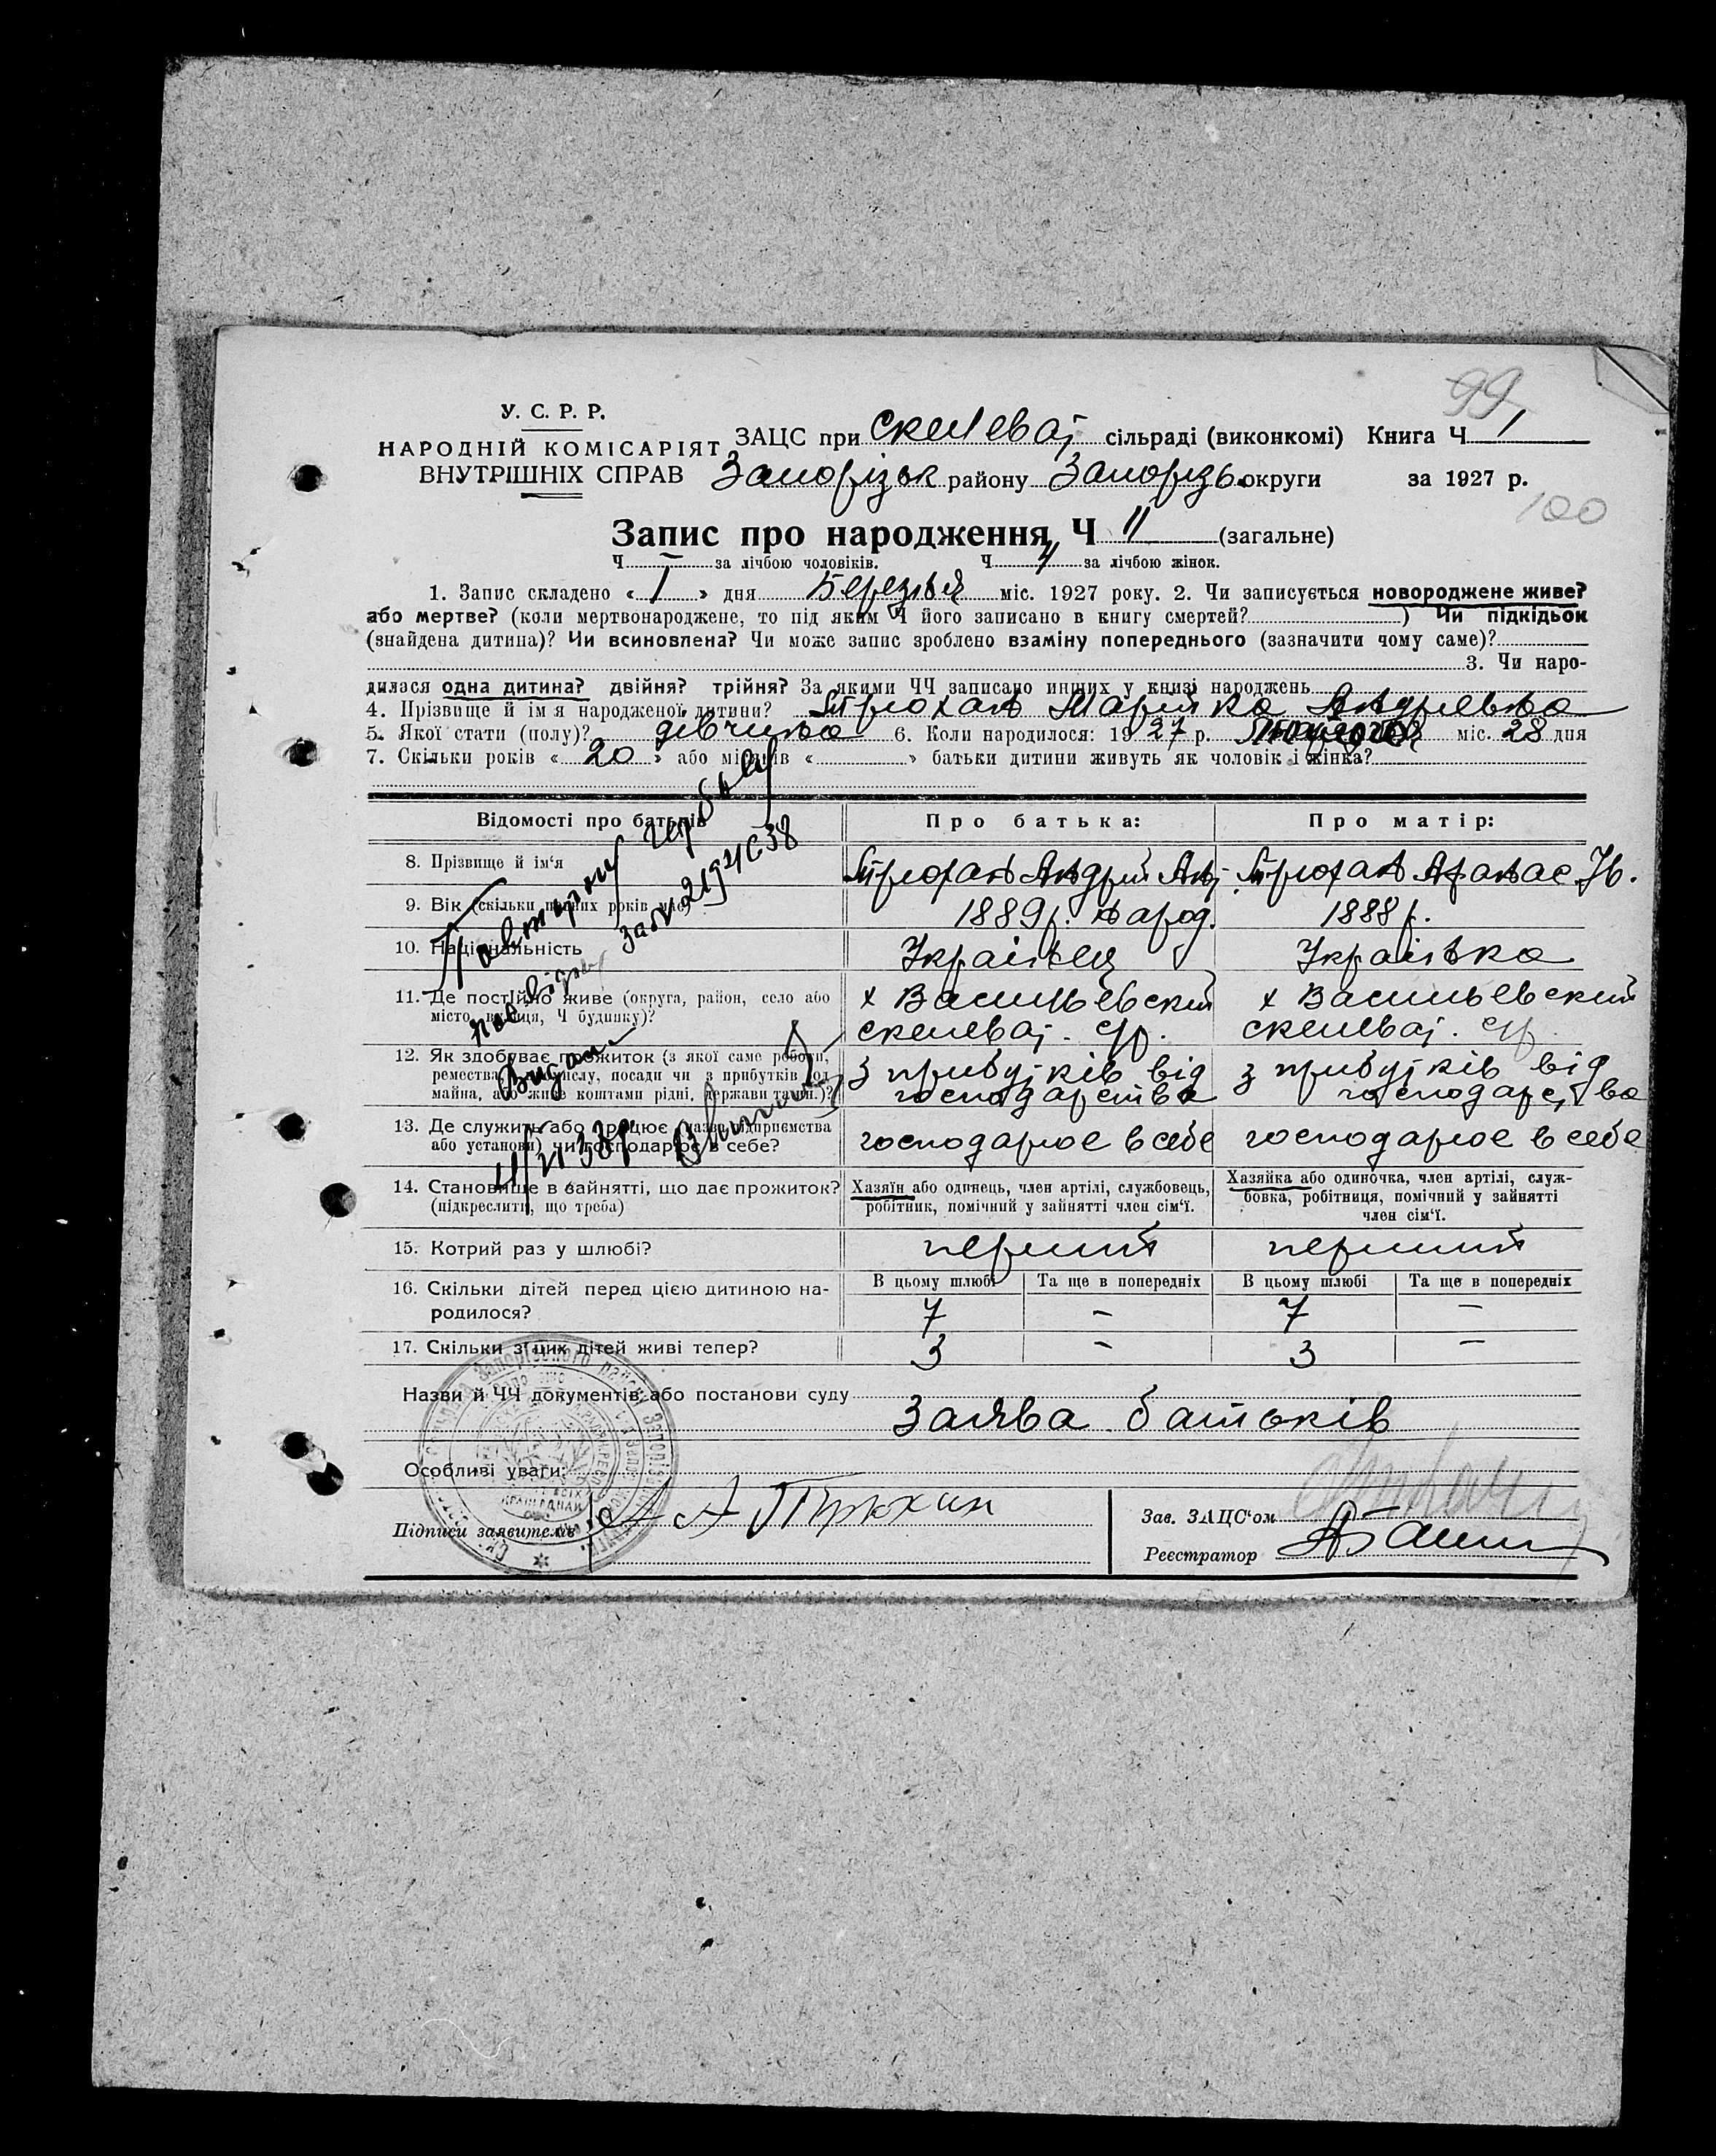 99
У. С. Р. Р.
НАРОДНІЙ КОМІСАРІЯТ
ВНУТРІШНІХ СПРАВ
ЗАЦС при скелеваț сільраді (виконкомі) Книга Ч 1
Запорізьк району Запорізь округи за 1927 р.
100
Запис про народження Ч 11 (загальне)
Ч — за лічбою чоловіків. Ч 4 за лічбою жінок.
1. Запис складено « 1 » дня Березня міс. 1927 року. 2. Чи записується новороджене живе?
або мертве? (коли мертвонароджене, то під яким Ч його записано в книгу смертей? ) Чи підкідьок
(знайдена дитина)? Чи всиновлена? Чи може запис зроблено взаміну попереднього (зазначити чому саме)?
3. Чи наро-
дилася одна дитина? двійня? трійня? За якими ЧЧ записано инших у книзі народжень
4. Прізвище й ім'я народженої дитини? Трюхан Марійка Андріевна
5. Якої стати (полу)? дівчина 6. Коли народилося: 19 27 р. міс. 28 дня
7. Скільки років « 20 » або місяців « » батьки дитини живуть як чоловік і жінка?
Відомості про батьків Про батька: Про матір:
8. Прізвище й ім'я Трюхан Андрій Ан. Трюхан Афанас. Ів.
9. Вік (скільки повних років має) 1889р. народ. 1888р.
10. Національність Українец Українка
11. Де постійно живе (округа, район, село або місто, вулиця, Ч будинку)?
х Васильевский х Васильевский
12. Як здобуває прожиток (з якої саме роботи, ремества, промислу, посади чи з прибутків од майна, або живе коштами рідні, держави тащо.)?
з прибутків від господарства з прибутків від господарства
13. Де служить або працює (назва підприємства або установи) чи господарює в себе?
господарює в себе господарює в себе
14. Становище в зайнятті, що дає прожиток? (підкреслити, що треба)
Хазяїн або одинець, член артілі, службовець, робітник, помічний у зайнятті член сім'ї.
Хазяйка або одиночка, член артілі, служ-
бовка, робітниця, помічний у зайнятті
член сім'ї.
15. Котрий раз у шлюбі? перший перший
В цьому шлюбі Та ще в попередніх В цьому шлюбі Та ще в попередніх
16. Скільки дітей перед цією дитиною на-
родилося? 7 — 7 —
17. Скільки з цих дітей живі тепер? 3 — 3 —
Назви й ЧЧ документів або постанови суду
Заява батьків
Особливі уваги:
Підписи заявителів А А Трюхин
Зав. ЗАЦС'ом
Реєстратор